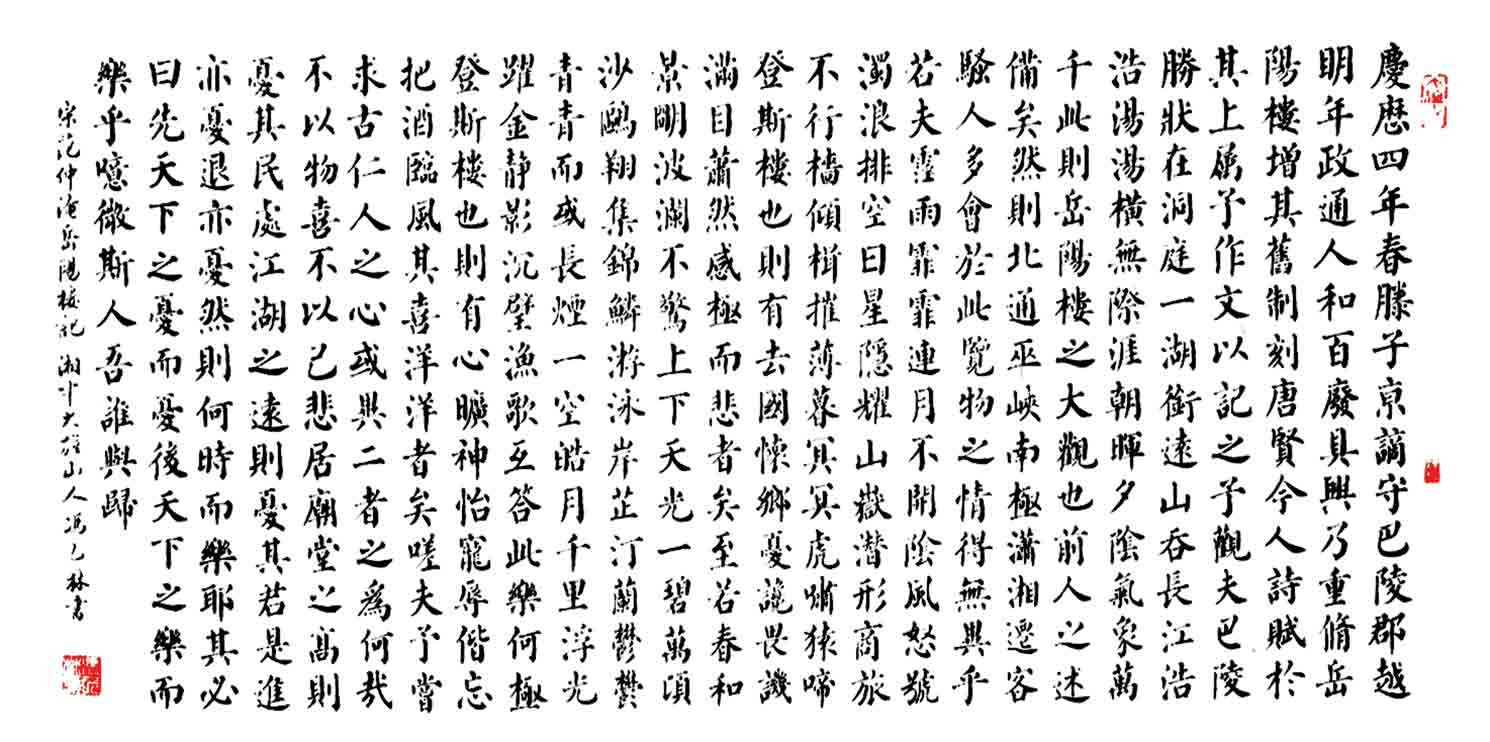 慶歷四年春滕子京謫守巴陵郡越
明年政通人和百廢具興乃重脩岳
陽樓增其舊制刻唐賢今人詩賦於
其上属予作文以記之予觀夫巴陵
勝狀在洞庭一湖銜遠山吞長江浩
浩湯湯橫無際涯朝暉夕陰氣象萬
千此則岳陽樓之大觀也前人之述
備矣然則北通巫峽南極瀟湘遷客
騷人多會於此覽物之情得無異乎
若夫霪雨霏霏連月不開陰風怒號
濁浪排空日星隱耀山嶽潛形商旅
不行檣傾楫摧薄暮冥冥虎嘯猿啼
登斯樓也則有去國懷鄉憂讒畏譏
滿目蕭然感極而悲者矣至若春和
景明波瀾不驚上下天光一碧萬頃
沙鷗翔集錦鱗游泳岸芷汀蘭鬱鬱
青青而或長煙一空皓月千里浮光
躍金静影沉璧漁歌互答此樂何極
登斯樓也則有心曠神怡寵辱偕忘
把酒臨風其喜洋洋者矣嗟夫予嘗
求古仁人之心或異二者之為何哉
不以物喜不以己悲居廟堂之高則
憂其民處江湖之遠則憂其君是進
亦憂退亦憂然則何時而樂耶其必
曰先天下之憂而憂後天下之樂而
樂乎噫微斯人吾誰與歸
宋范仲淹岳陽樓記 湘中大雄山人馮乙林書